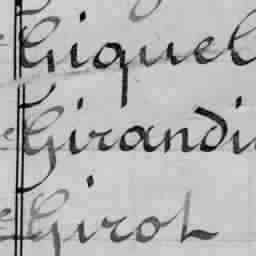 Giquel
Girandi
Girot